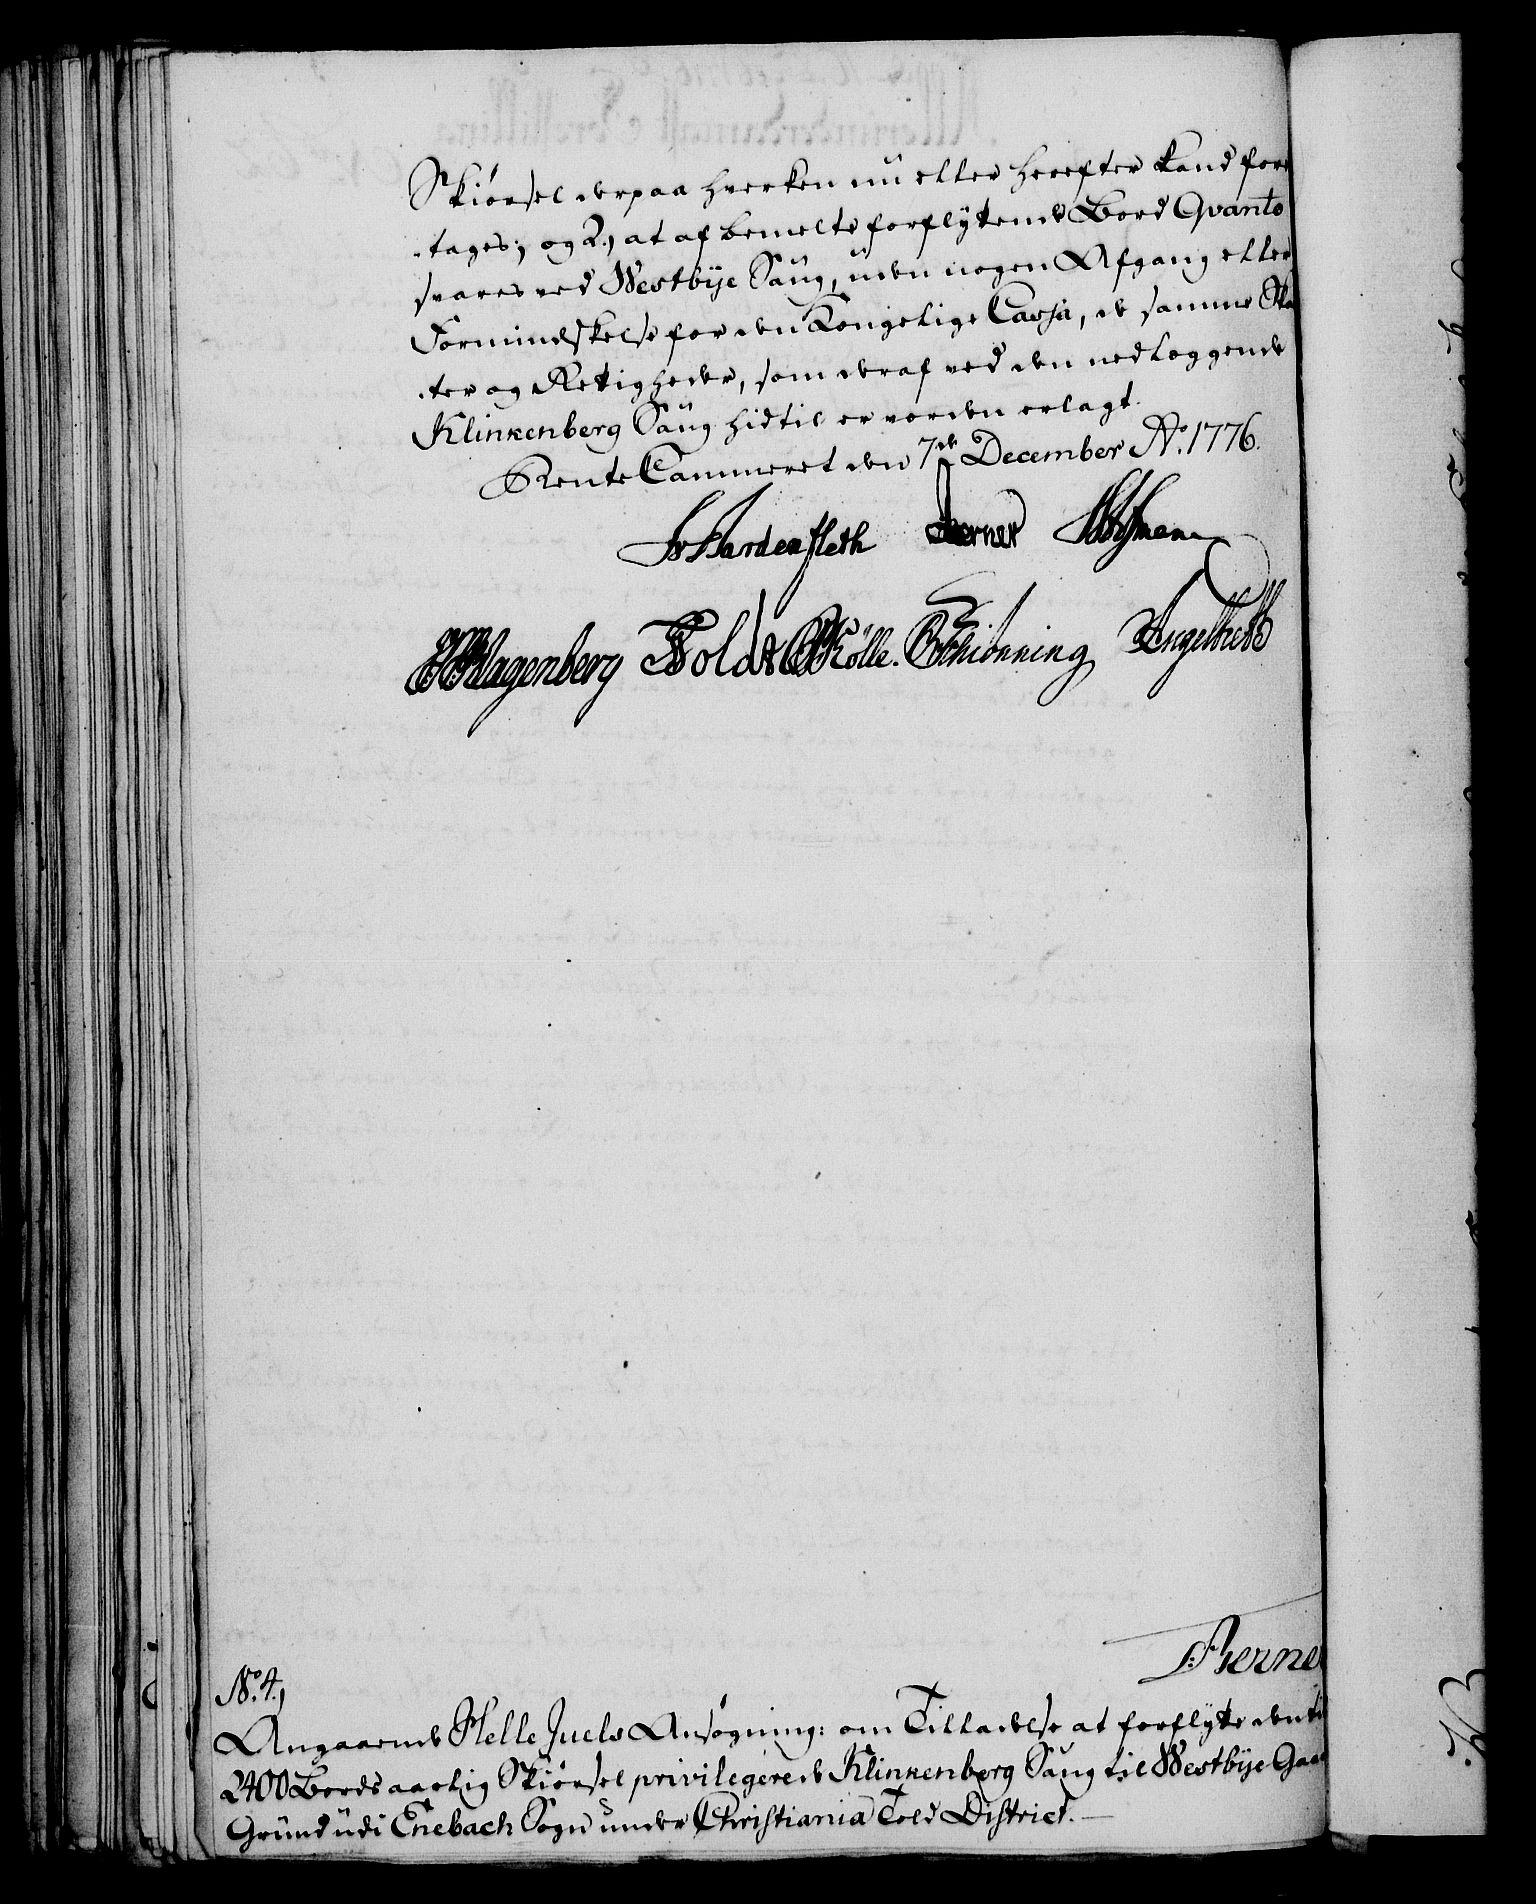 Skiørsel derpaa hverken nu eller herefter kand fore
-tages; og 2.) at af bemelte forflytende Bord Qvanto
svares ved Westbÿe Saug, uden nogen Afgang eller
Formindskelse for den Kongelige Cassa, de samme Ska
-ter og Rettigheder, som deraf ved den nedlæggende
Klinkenberg Saug hidtil er vorden erlagt.
RenteCammeret den 7de December Ao. 1776.
Hardenfleth Berner
Klagenberg Holdt Kølle. Schiønning Engelstedt
Berner
No. 4.)
Angaaende Pelle Juels Ansøgning: om Tilladelse at forflytte den til
2400 Bords aarlig Skiørsel privilegerede Klinkenberg Saug til Westbÿe Gaa
Grund udi Enebach Sogn under Christiania Told District. —